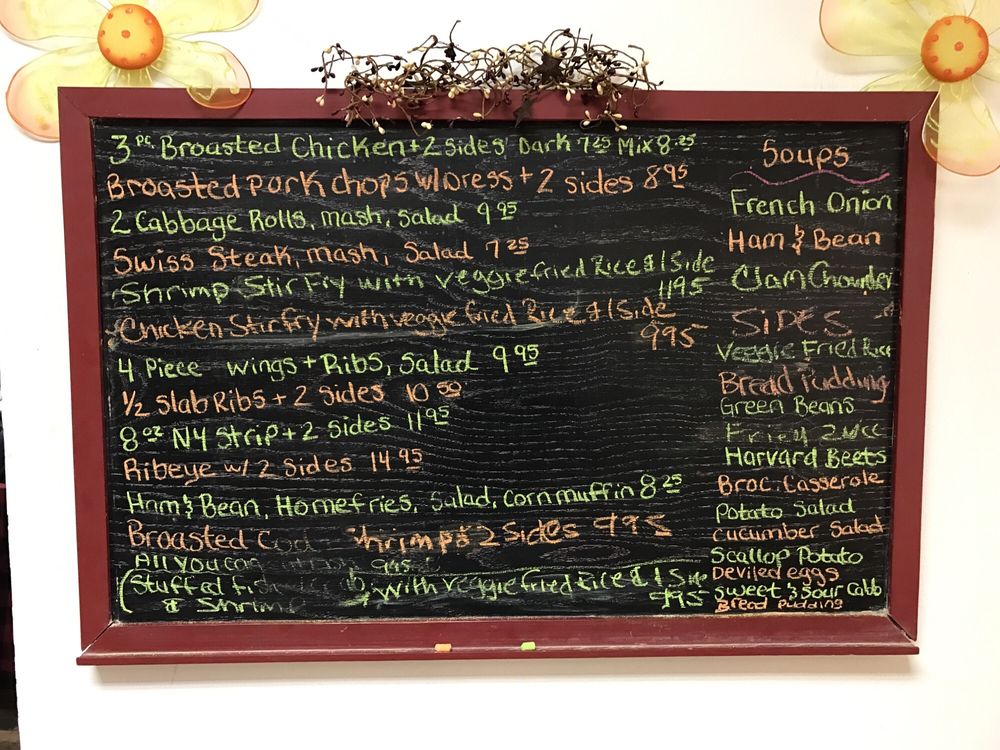 3 pc. Broasted Chicken + 2 Sides Dark 7.25 Mix 8.25
Broasted Pork chops w/Dress + 2 sides 8 95
2 Cabbage Rolls, mash, Salad 9 95
Swiss Steak, mash, Salad 7 25
Shrimp Stir Fry with veggie fried Rice & 1 Side
11 95
Chicken Stir fry with veggie fried Rice & 1 Side
9 95
4 Piece wings + Ribs, Salad 9 95
1/2 Slab Ribs + 2 Sides 10 50
8 oz NY Strip + 2 Sides 11 95
Ribeye w/ 2 Sides 14 95
Ham & Bean, Homefries, Salad, Corn muffin 8 25
Broasted Cod Shrimp & 2 Sides 9 95
All you can 9 95
Stuffed fish with veggie fried rice & 1 Side
& Shrimp 9 95
Soups
French Onion
Ham & Bean
Clam Chowder
Sides
Veggie Fried Rice
Bread Pudding
Green Beans
Harvard Beets
Broc. Casserole
Potato Salad
Cucumber Salad
Scallop Potato
Deviled eggs
Sweet & Sour Cabb
Bread Pudding